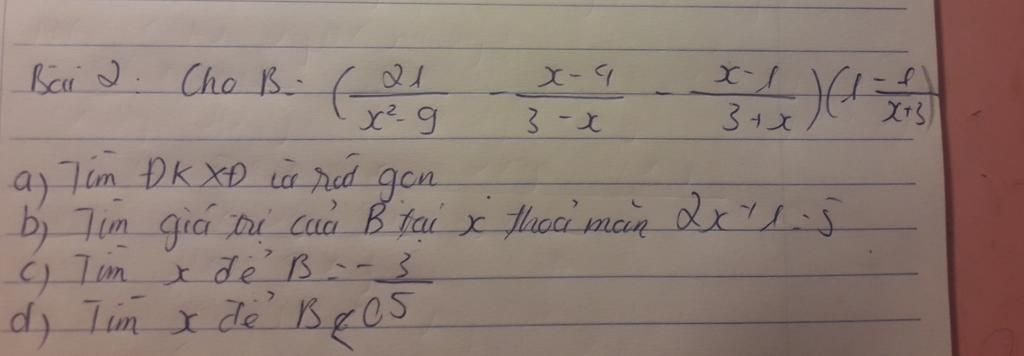 Bài 2: Cho B = ( 21/(x² - 9) - (x - 4)/(3 - x) - (x - 1)/(3 + x) ) ( 1 - 1/(x + 3) )
a) Tìm ĐKXĐ và rút gọn
b) Tìm giá trị của B tại x thoả mãn 2x + 1 = 5
c) Tìm x để B = - 3/5
d) Tìm x để B < 0